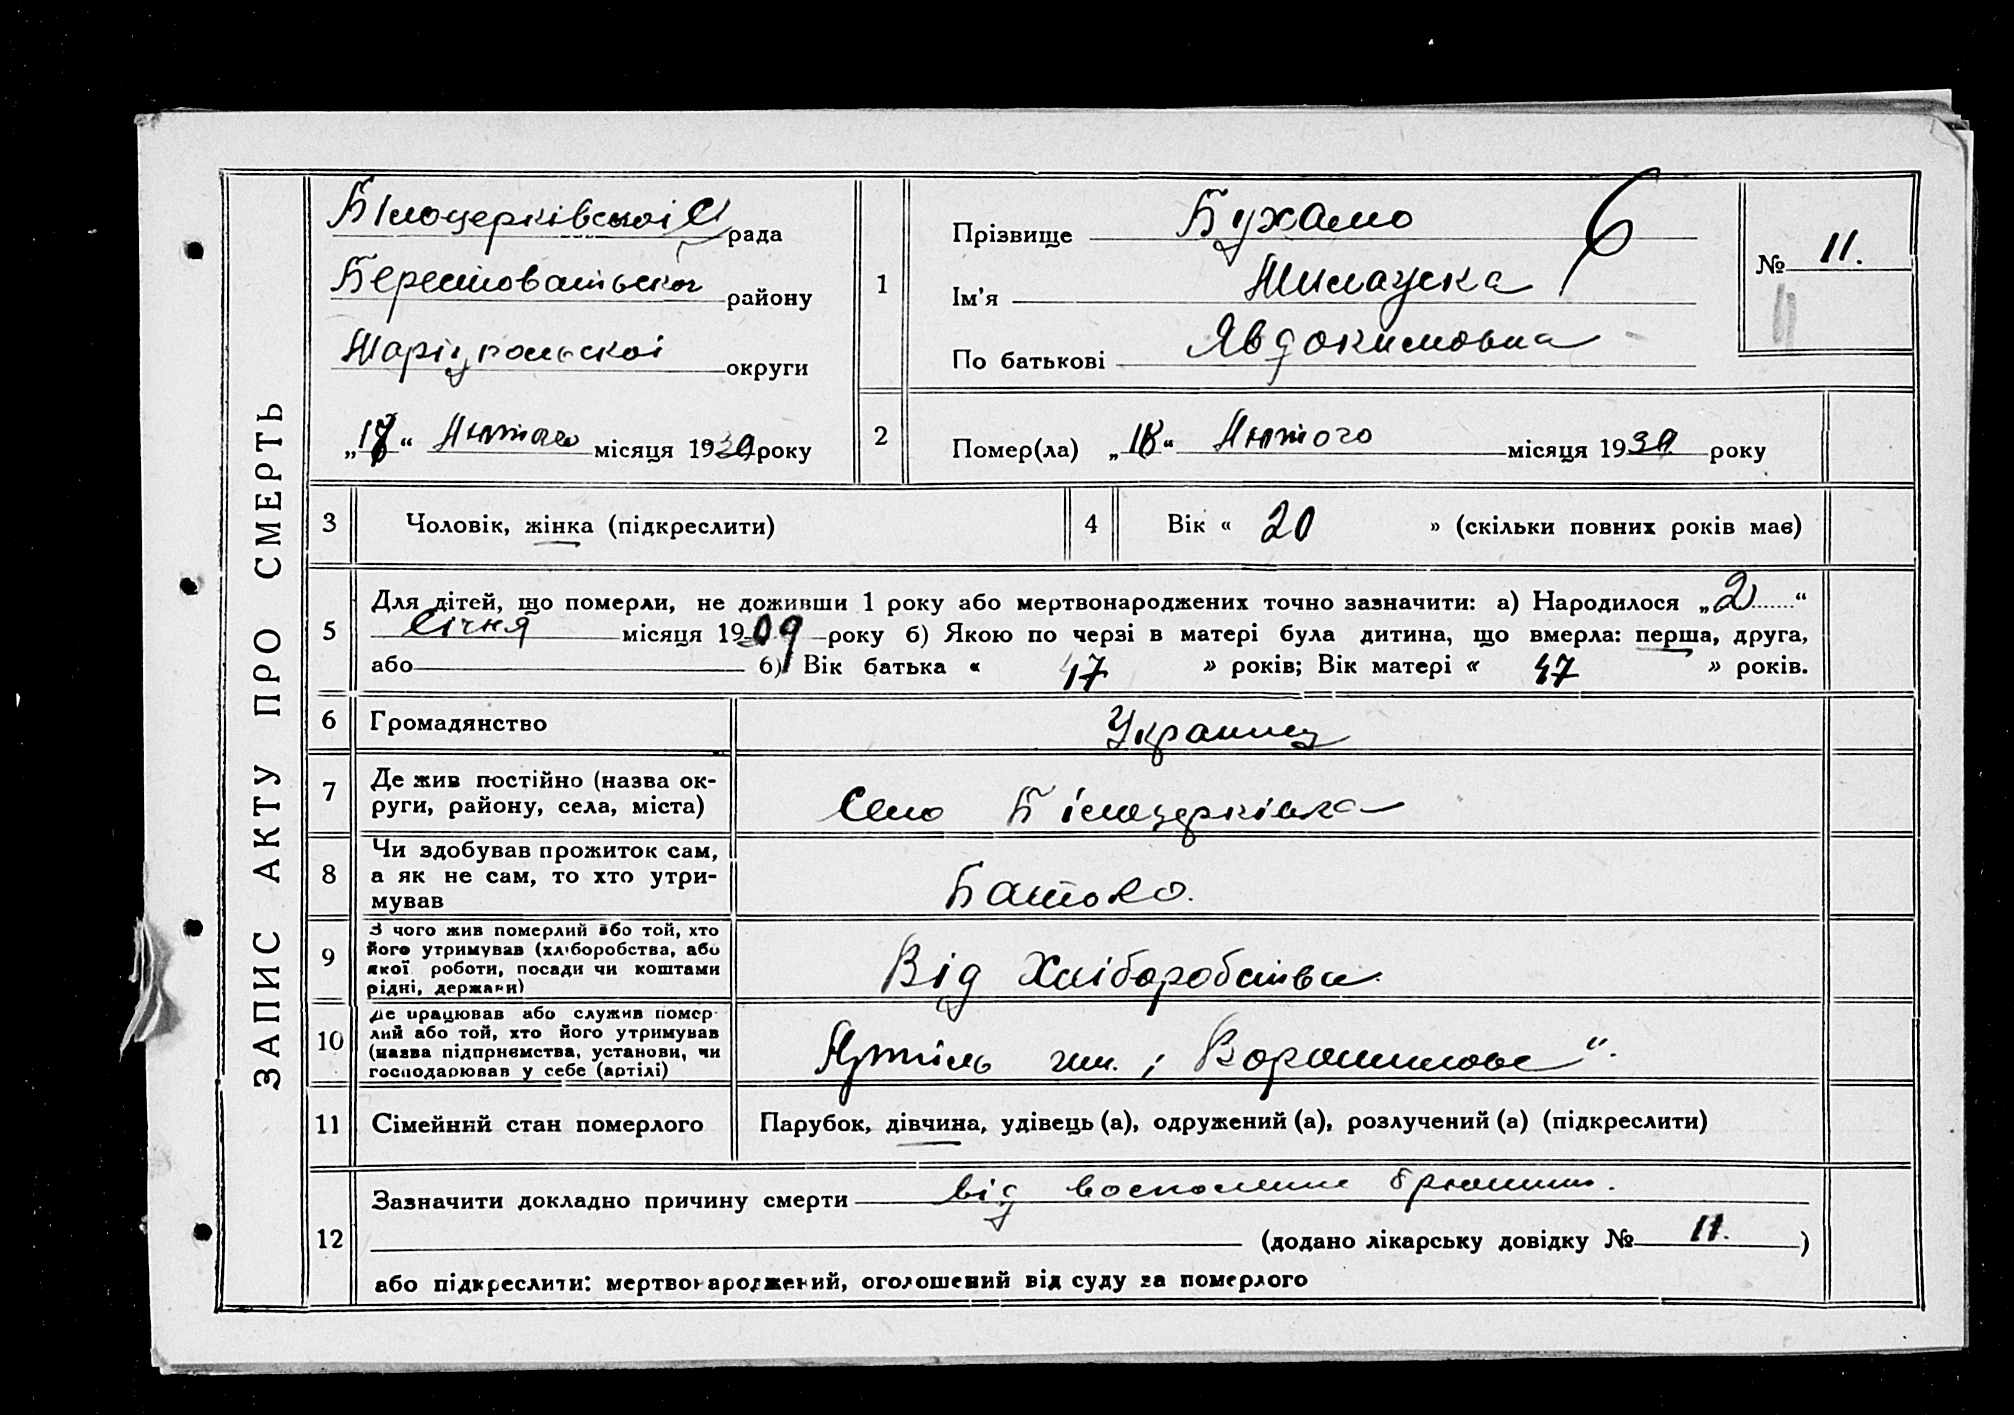 ЗАПИС АКТУ ПРО СМЕРТЬ
Білоцерківської С рада
Берестоватської району
Маріупольскої округи
„17“ Лютого місяця 1930 року
1
Прізвище Бухало б
Ім'я
По батькові Явдокимовна
№ 11.
2
Помер(ла) „18“ Лютого місяця 1930 року
3 Чоловік, жінка (підкреслити)
4 Вік « 20 » (скільки повних років має)
5
Для дітей, що померли, не доживши 1 року або мертвонароджених точно зазначити: а) Народилося „2“
Січня місяця 1909 року б) Якою по черзі в матері була дитина, що вмерла: перша, друга,
або б) Вік батька « 47 » років; Вік матері « 47 » років.
6 Громадянство Украинц
7 Де жив постійно (назва ок-
руги, району, села, міста) Село Білоцерківка
8 Чи здобував прожиток сам,
а як не сам, то хто утри-
мував Батько.
9 З чого жив померлий або той, хто
його утримував (хліборобства, або
якої роботи, посади чи коштами
рідні, держави) Від Хліборобства.
10 Де працював або служив помер-
лий або той, хто його утримував
(назва підприємства, установи, чи
господарював у себе (артілі) Артіль им. „Ворошилова“.
11 Сімейний стан померлого Парубок, дівчина, удівець (а), одружений (а), розлучений (а) (підкреслити)
12
Зазначити докладно причину смерти від восполение брюшини.
(додано лікарську довідку № 11.)
або підкреслити: мертвонароджений, оголошений від суду за померлого